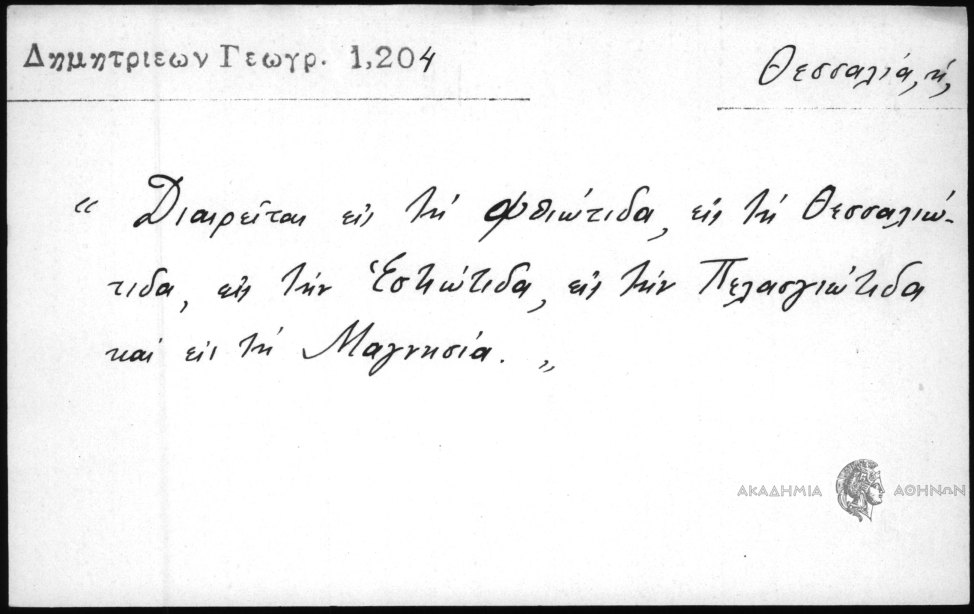 Δημητριεων Γεωγρ. 1,204
Θεσσαλία, ἡ,
“ Διαιρεῖται εἰς τὴ Φθιώτιδα, εἰς τὴ Θεσσαλιώ-
τιδα, εἰς τὴν Ἑστιώτιδα, εἰς τὴν Πελασγιώτιδα
καὶ εἰς τὴ Μαγνησία. „
ΑΚΑΔΗΜΙΑ ΑΘΗΝΩΝ